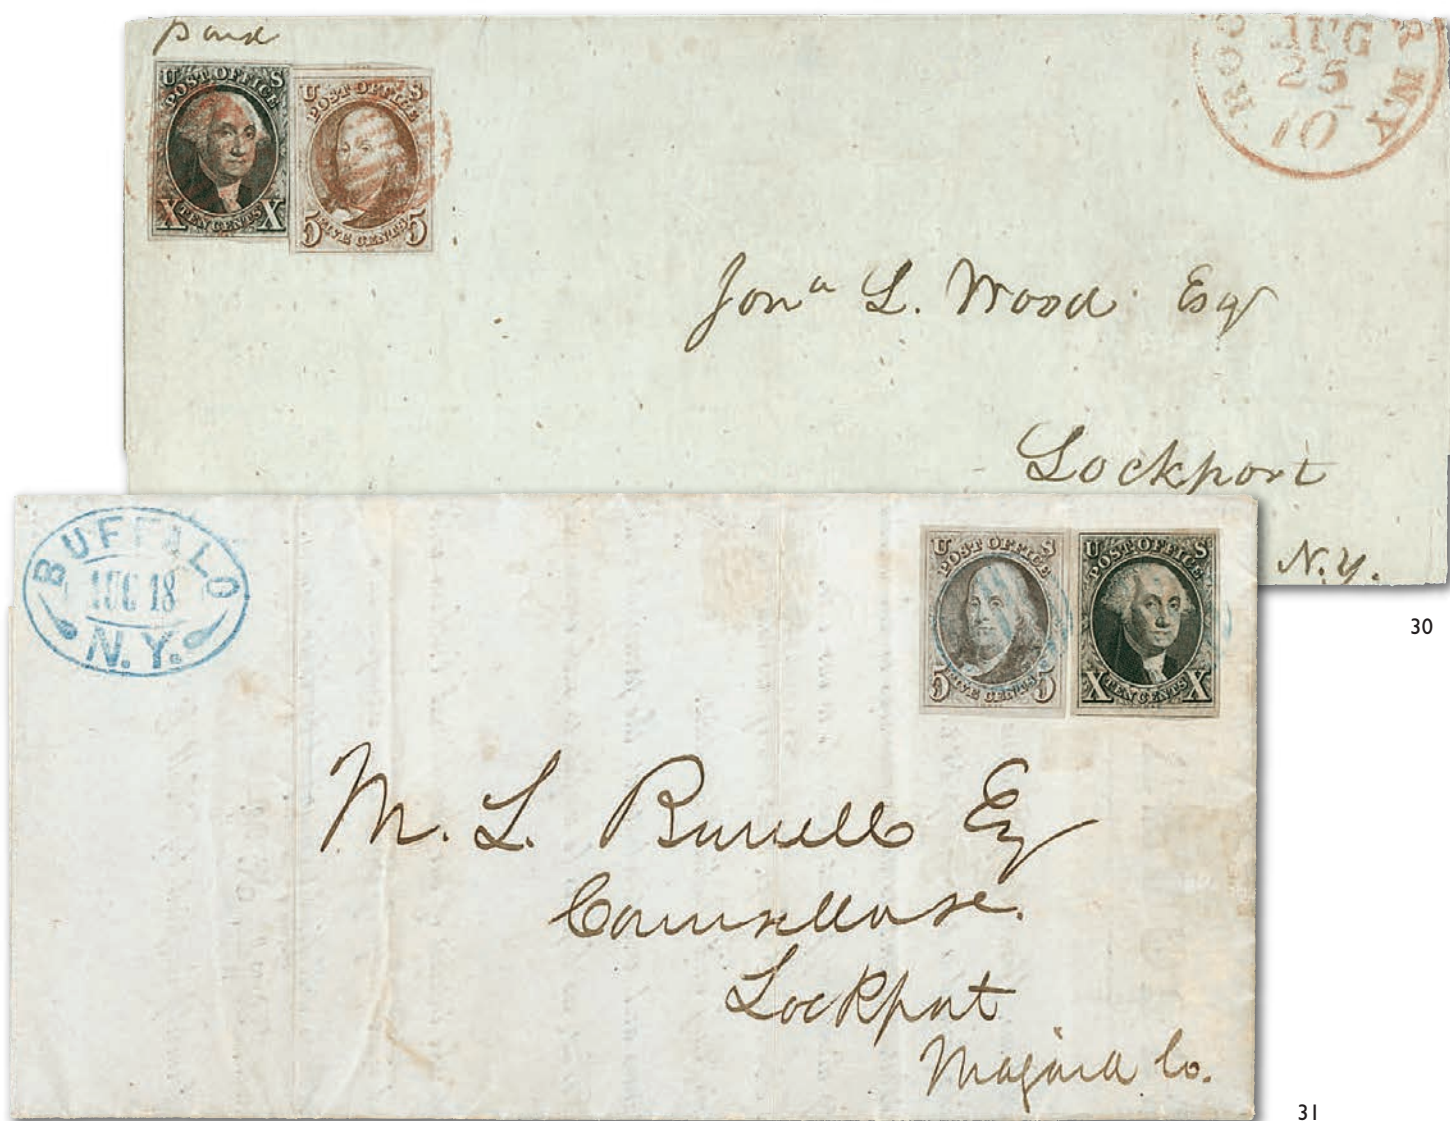 paid
U S
POST OFFICE
X TEN CENTS X
U S
POST OFFICE
5 FIVE CENTS 5
AUG
25
10
R N.Y
Jonª L. Wood Esq
Lockport
N.Y.
30
BUFFALO
AUG 18
N.Y.
U S
POST OFFICE
5 FIVE CENTS 5
U S
POST OFFICE
X TEN CENTS X
M. L. Burrell Esq
Counsellor
Lockport
Niagara Co.
31